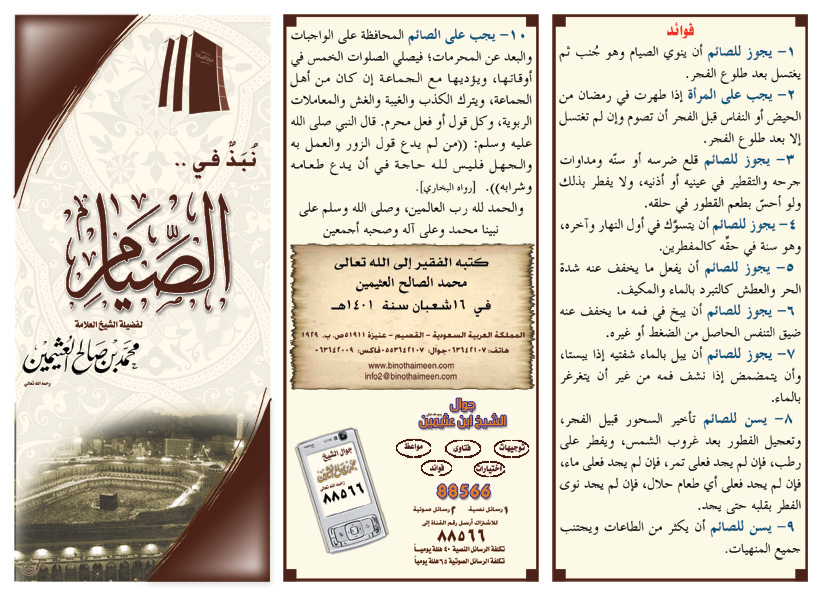 نُبَذٌ في ..
الصِّيَام
لفضيلة الشيخ العلامة
محمد بن صالح العثيمين
رحمه الله تعالى
فوائد
١- يجوز للصائم أن ينوي الصيام وهو جُنب ثم
يغتسل بعد طلوع الفجر.
٢- يجب على المرأة إذا طهرت في رمضان من
الحيض أو النفاس قبل الفجر أن تصوم وإن لم تغتسل
إلا بعد طلوع الفجر.
٣- يجوز للصائم قلع ضرسه أو سنّه ومداوات
جرحه والتقطير في عينيه أو أذنيه، ولا يفطر بذلك
ولو أحسّ بطعم القطور في حلقه.
٤- يجوز للصائم أن يتسوَّك في أول النهار وآخره،
وهو سنة في حقِّه كالمفطرين.
٥- يجوز للصائم أن يفعل ما يخفف عنه شدة
الحر والعطش كالتبرد بالماء والمكيف.
٦- يجوز للصائم أن يبخ في فمه ما يخفف عنه
ضيق التنفس الحاصل من الضغط أو غيره.
٧- يجوز للصائم أن يبل بالماء شفتيه إذا يبستا،
وأن يتمضمض إذا نشف فمه من غير أن يتغرغر
بالماء.
٨- يسن للصائم تأخير السحور قبيل الفجر،
وتعجيل الفطور بعد غروب الشمس، ويفطر على
رطب، فإن لم يجد فعلى تمر، فإن لم يجد فعلى ماء،
فإن لم يجد فعلى أي طعام حلال، فإن لم يجد نوى
الفطر بقلبه حتى يجد.
٩- يسن للصائم أن يكثر من الطاعات ويجتنب
جميع المنهيات.
١٠- يجب على الصائم المحافظة على الواجبات
والبعد عن المحرمات؛ فيصلي الصلوات الخمس في
أوقاتها، ويؤديها مع الجماعة إن كان من أهل
الجماعة، ويترك الكذب والغيبة والغش والمعاملات
الربوية، وكل قول أو فعل محرم. قال النبي صلى الله
عليه وسلم: ((من لم يدع قول الزور والعمل به
والجهل فليس لله حاجة في أن يدع طعامه
وشرابه)). [رواه البخاري].
والحمد لله رب العالمين، وصلى الله وسلم على
نبينا محمد وعلى آله وصحبه أجمعين
كتبه الفقير إلى الله تعالى
محمد الصالح العثيمين
في ١٦ شعبان سنة ١٤٠١هـ
المملكة العربية السعودية - القصيم - عنيزة ٥١٩١١ ص.ب. ١٩٢٩
هاتف: ٠٦٣٦٤٢١٠٧ جوال: ٠٥٥٣٦٤٢١٠٧ فاكس: ٠٦٣٦٤٢٠٠٩
www.binothaimeen.com
info2@binothaimeen.com
جوال
الشيخ ابن عثيمين
توجيهات فتاوى مواعظ
اختيارات فوائد
88566
١ رسائل نصية ٢ رسائل صوتية
للاشتراك أرسل رقم القناة إلى
٨٨٥٦٦
تكلفة الرسائل النصية ٤٠ هللة يومياً
تكلفة الرسائل الصوتية ٦٥ هللة يومياً
جوال الشيخ
محمد بن صالح العثيمين
رحمه الله تعالى
٨٨٥٦٦